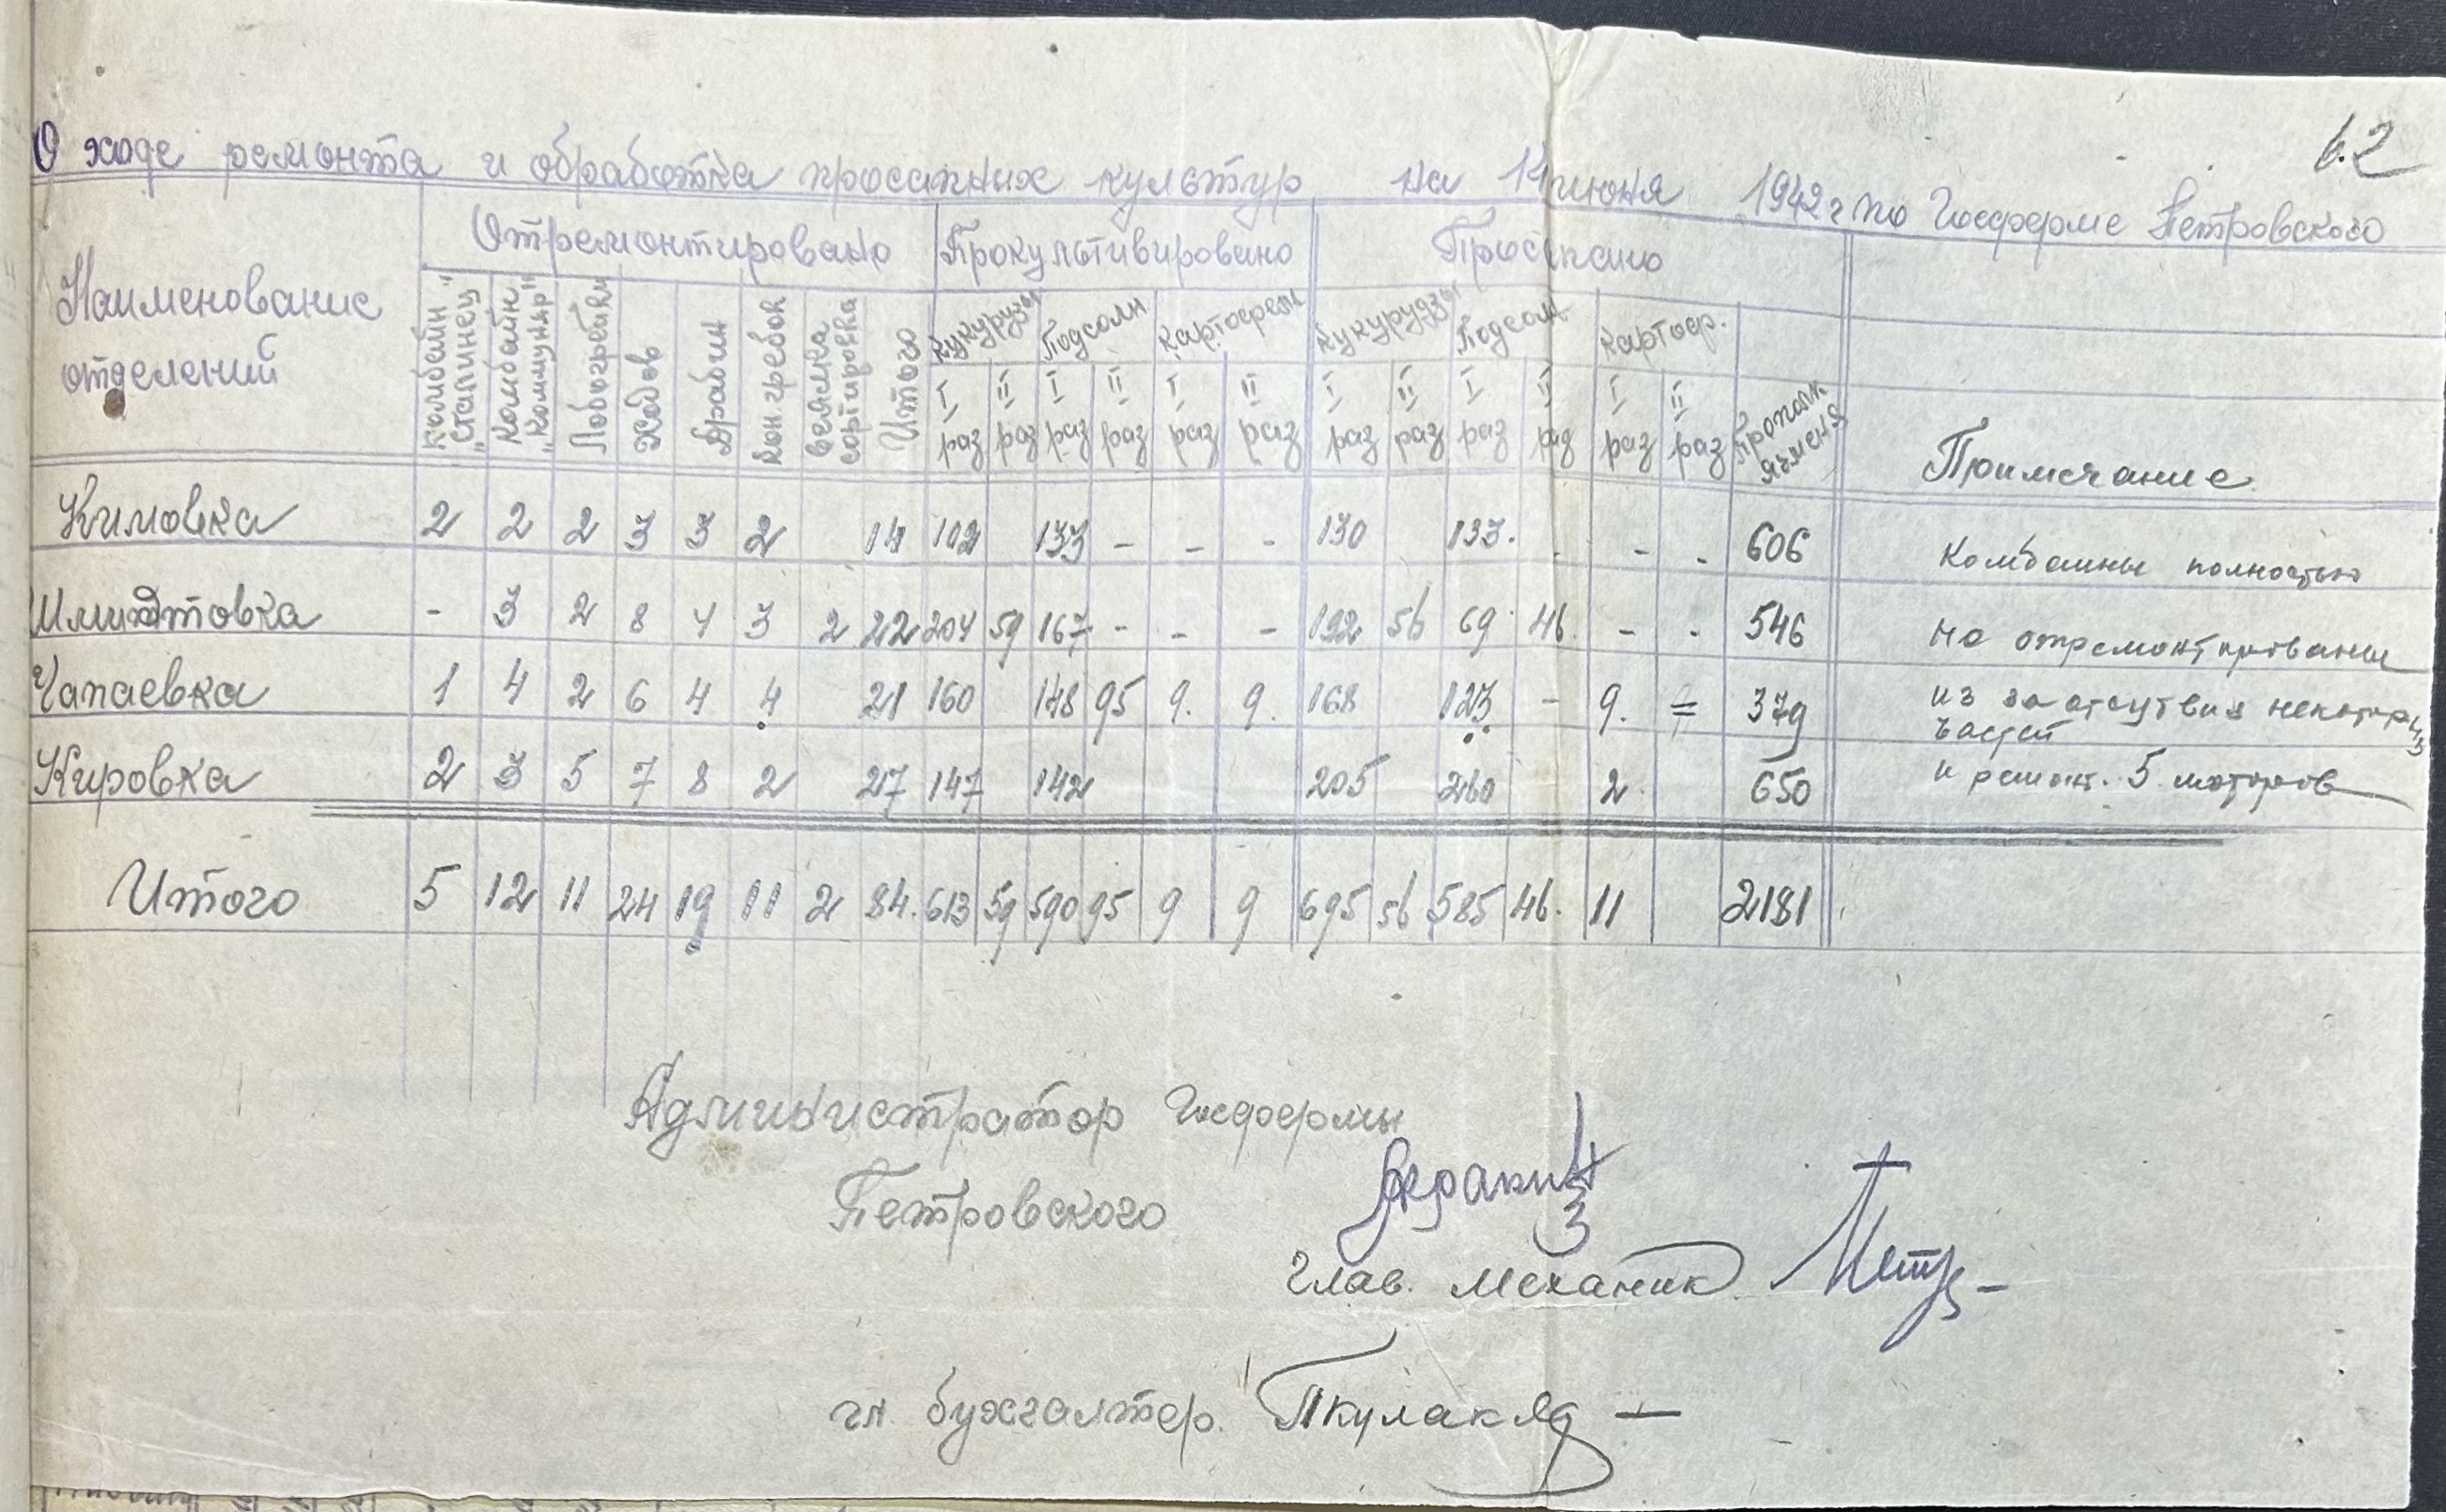 62
О ходе ремонта и обработка просапных культур на 14 июня 1942 г по Госферме Петровского
Наименование отделений
Отремонтировано
Прокультивировано
Просапано
Комбайн "Сталинец"
Комбайн "Коммунар"
Лобогрейки
Ходов
Драбин
Кон. гребок
Веялка сортировка
Итого
Кукурузы
Подсолн
Картофель
Кукурудзы
Подсолн.
Картоф.
I раз II раз I раз II раз I раз II раз I раз II раз I раз II раз I раз II раз
Прополк ячменя
Примечание
Кимовка 2 2 2 3 3 2 14 102 133 - - - 130 133. - - - 606 Комбайны полностью
Шмидтовка - 3 2 8 4 3 2 22 204 59 167 - - - 192 56 69 46 - - 546 не отремонтированы
Чапаевка 1 4 2 6 4 4 21 160 148 95 9. 9. 168 123 - 9. = 379 из за отсутвия некоторых частей
Кировка 2 3 5 7 8 2 27 147 142 205 260 2 650 и ремонт. 5 моторов
Итого 5 12 11 24 19 11 2 84. 613 59 590 95 9 9 695 56 585 46. 11 2181
Администратор Госфермы
Петровского
Глав. механик
гл бухгалтер.